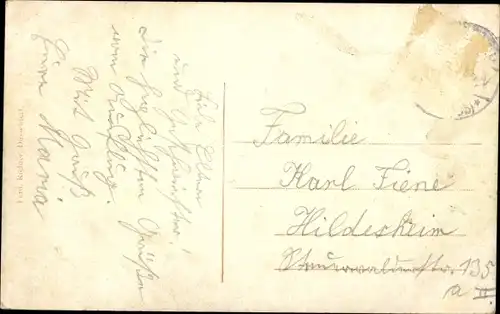 Liebe Eltern
und Geschwister!
Die herzlichsten Grüße
vom Ausflug.
Mit Gruß
Eure Maria
Familie
Karl Fiene
Hildesheim
135
a II.